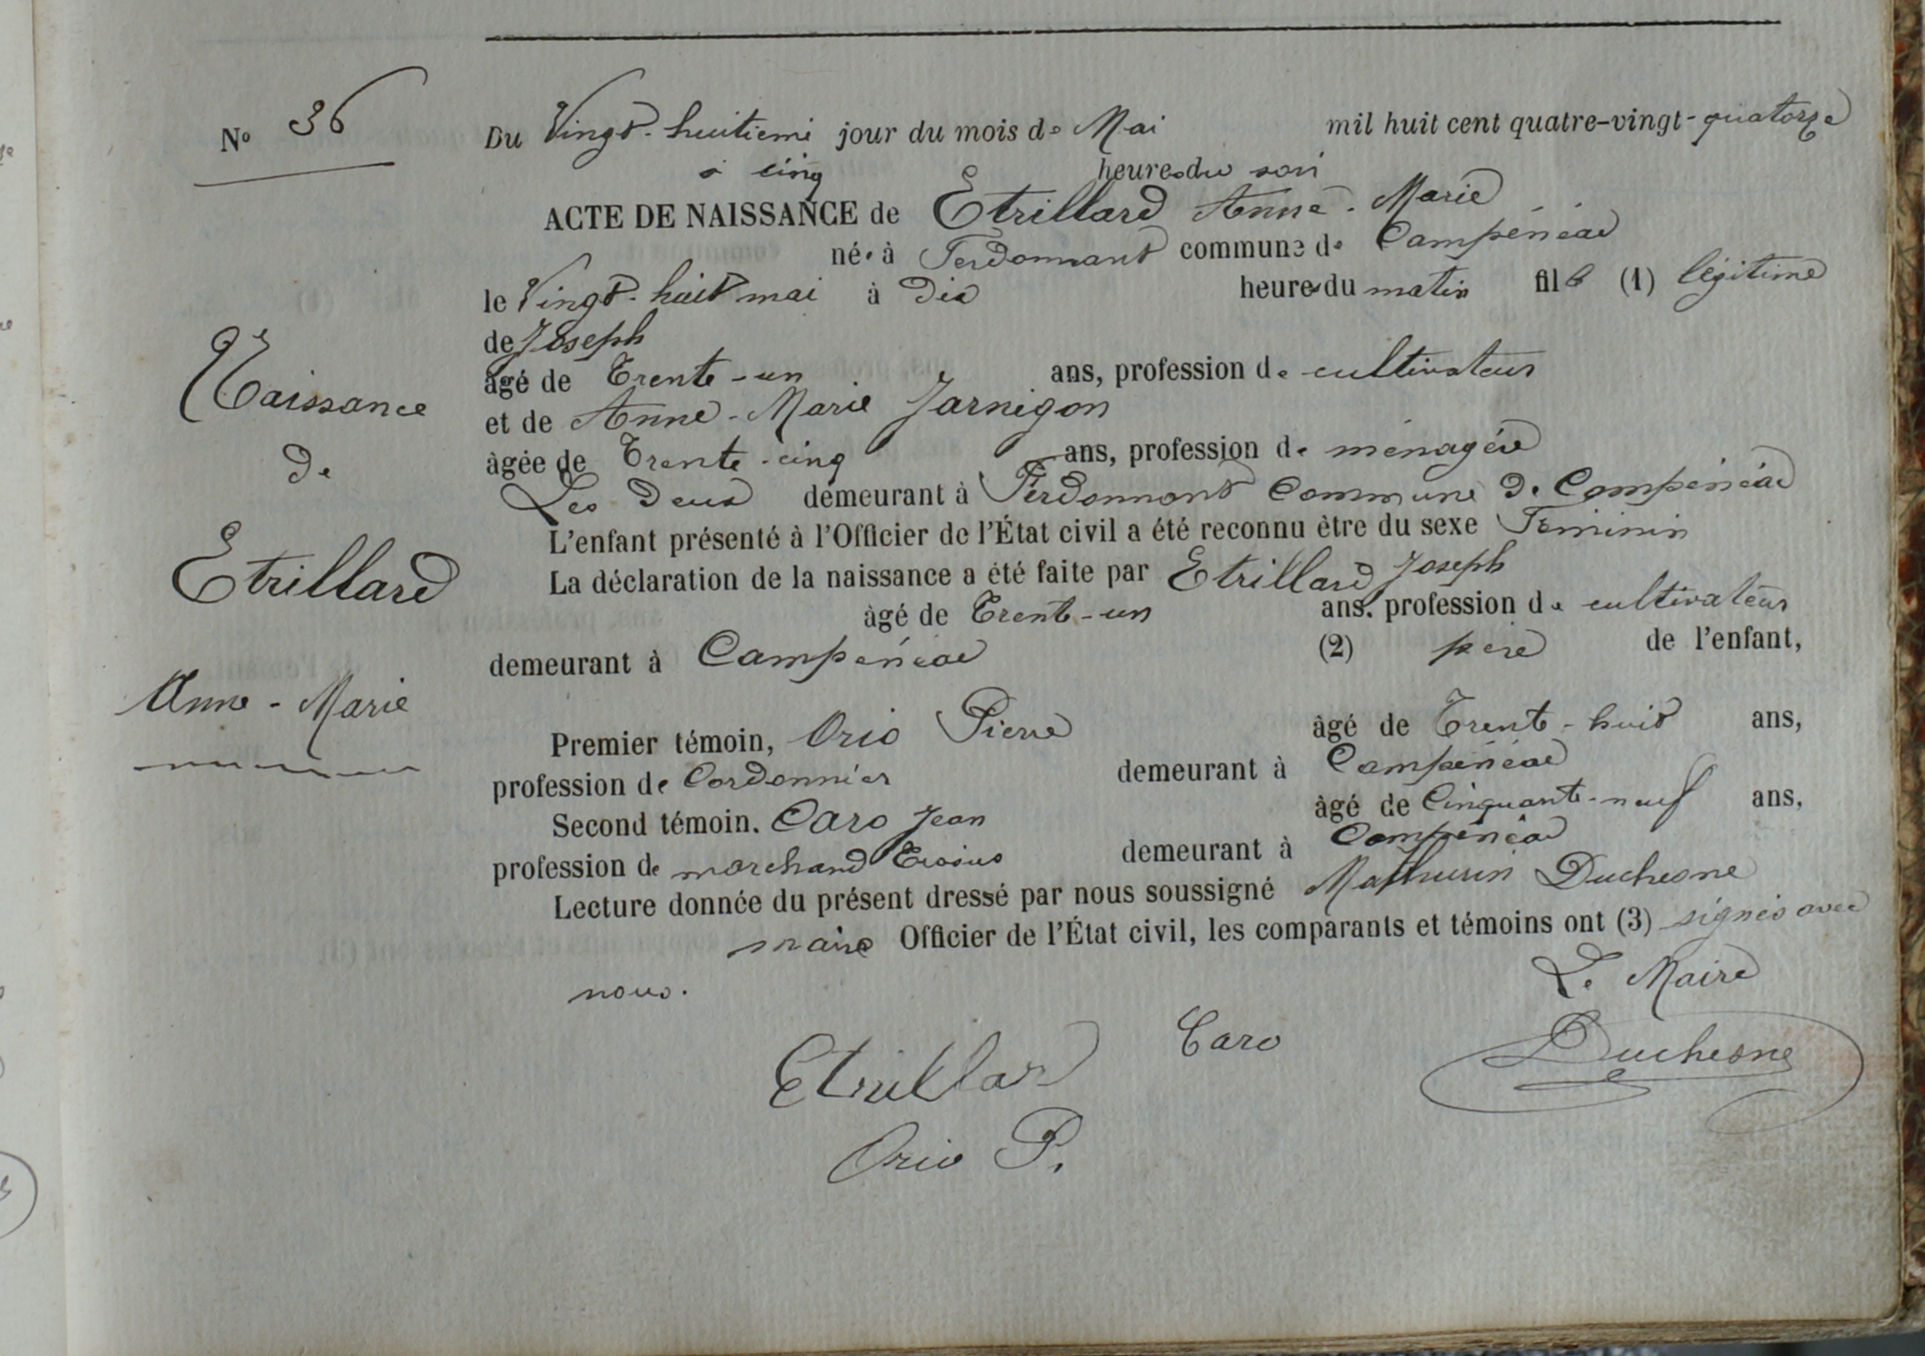 No 36
Du Vingt-huitieme jour du mois de Mai mil huit cent quatre-vingt-quatorze
à cinq heures du soir
ACTE DE NAISSANCE de Etrillard Anne-Marie
née à Ferdonnant commune de Campénéac
le Vingt-huit mai à Dix heures du matin fille (1) légitime
de Joseph
âgé de Trente-un ans, profession de cultivateur
et de Anne-Marie Jarnigon
âgée de Trente-cinq ans, profession de ménagère
Les Deux demeurant à Ferdonnant Commune de Campénéac
L'enfant présenté à l'Officier de l'État civil a été reconnu être du sexe Féminin
La déclaration de la naissance a été faite par Etrillard Joseph
âgé de Trente-un ans, profession de cultivateur
demeurant à Campénéac (2) père de l'enfant,
Premier témoin, Orio Pierre âgé de Trente-huit ans,
profession de Cordonnier demeurant à Campénéac
Second témoin. Caro Jean âgé de Cinquante-neuf ans,
profession de marchand demeurant à Campénéac
Lecture donnée du présent dressé par nous soussigné Mathurin Duchesne
maire Officier de l'État civil, les comparants et témoins ont (3) signés avec
nous.
Le Maire
Etrillard Caro Duchesne
Orio P.
Naissance
de
Etrillard
Anne-Marie